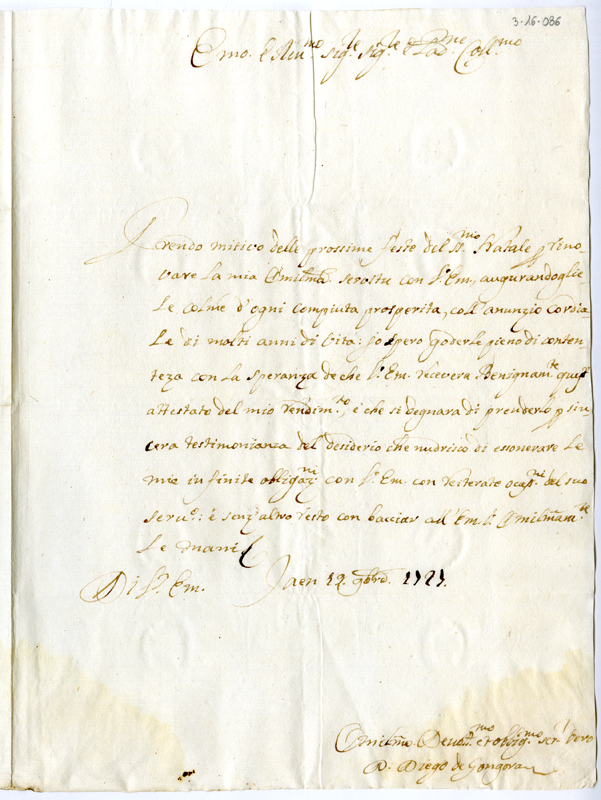 3-16-086
Emo. e Rev.mo Sig.re Sig.re e Pad.ne Coll.mo
Prendo mitivo delle prossime feste del S.mo Natale p rino
vare la mia Umilma. servitu con V.Em., augurandoglie
le colme d'ogni compiuta prosperita, coll'anunzio cordia
le di molti anni di vita: io spero goderle pieno di conten
tezza con la speranza de che V.Em. recevera Benignam.te quest
attestato del mio rendim.to, e che si degnara di prenderlo p sin
cera testimonianza del desiderio che nudrisco di essonerare le
mie infinite obligaz.ni con V.Em. con reiterate ocas.ni del suo
seru.o: e senz'altro resto con bacciar all'Em. V. Umilmam.te
le mani
Di V. Em. Jaen 12 9bre.
Umilmo. Devot.mo et oblig.mo ser.r vero
D. Diego de Gongora